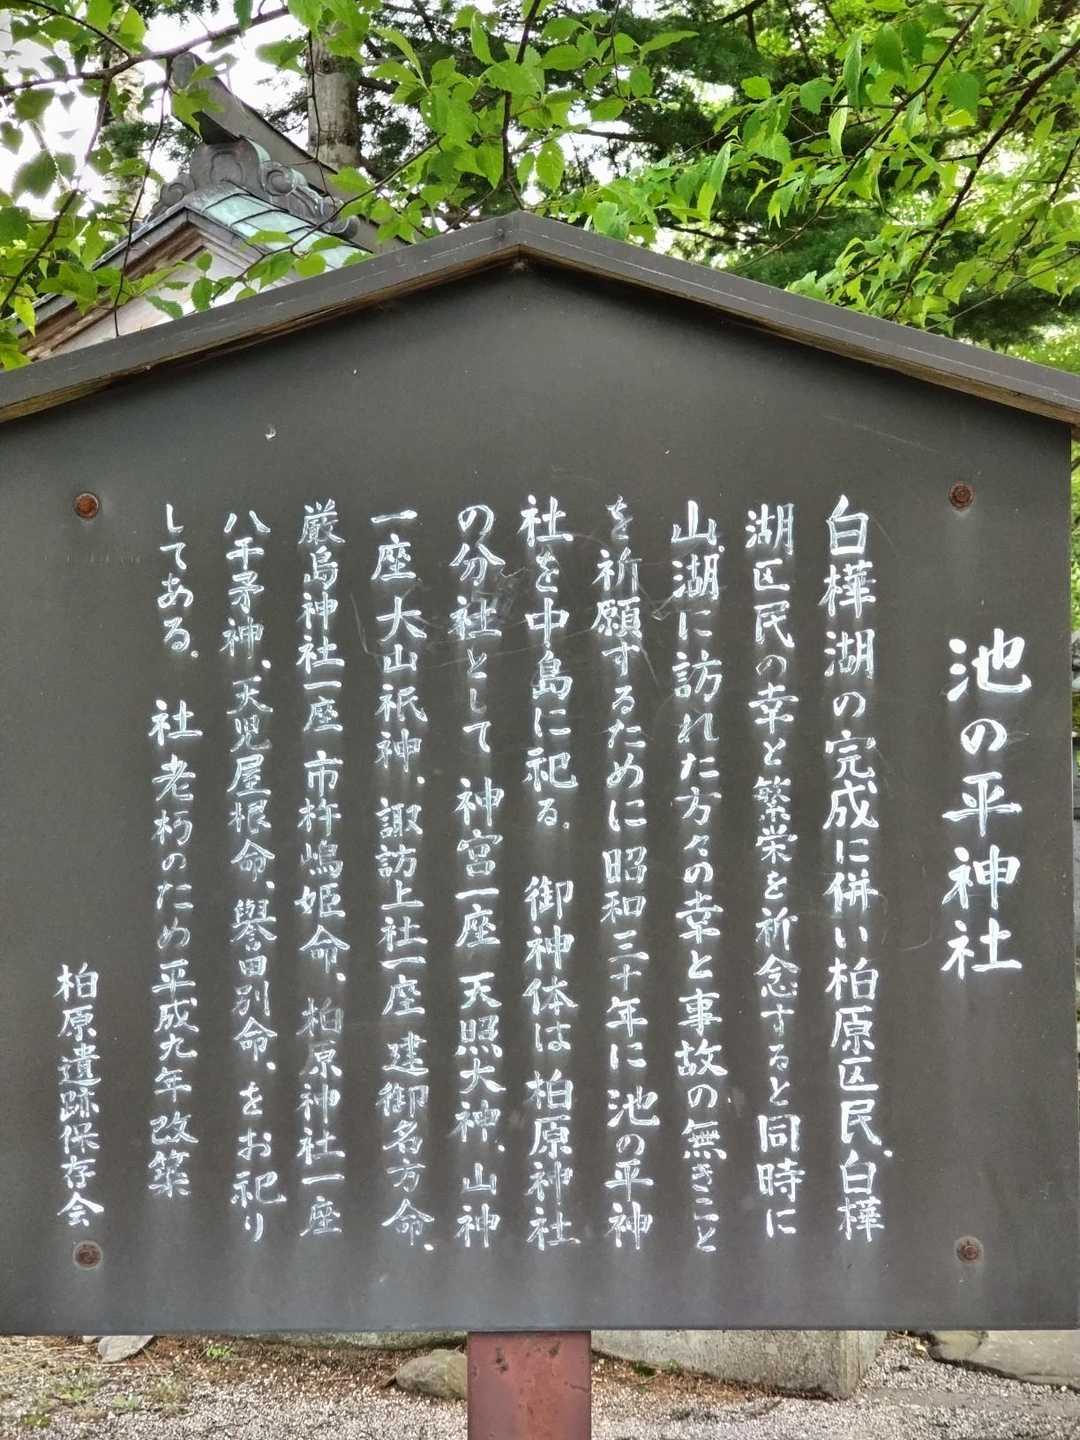 池の平神社
白樺湖の完成に併い柏原区民、白樺
湖区民の幸と繁栄を祈念すると同時に
山、湖に訪れた方々の幸と事故の無きこと
を祈願するために昭和三十年に池の平神
社を中島に祀る。 御神体は柏原神社
の分社として 神宮一座 天照大神、山神
一座 大山祇神、諏訪上社一座 建御名方命、
厳島神社一座 市杵嶋姫命、柏原神社一座
八千矛神、天児屋根命、譽田別命、をお祀り
してある。 社老朽のため平成九年改築
柏原遺跡保存会